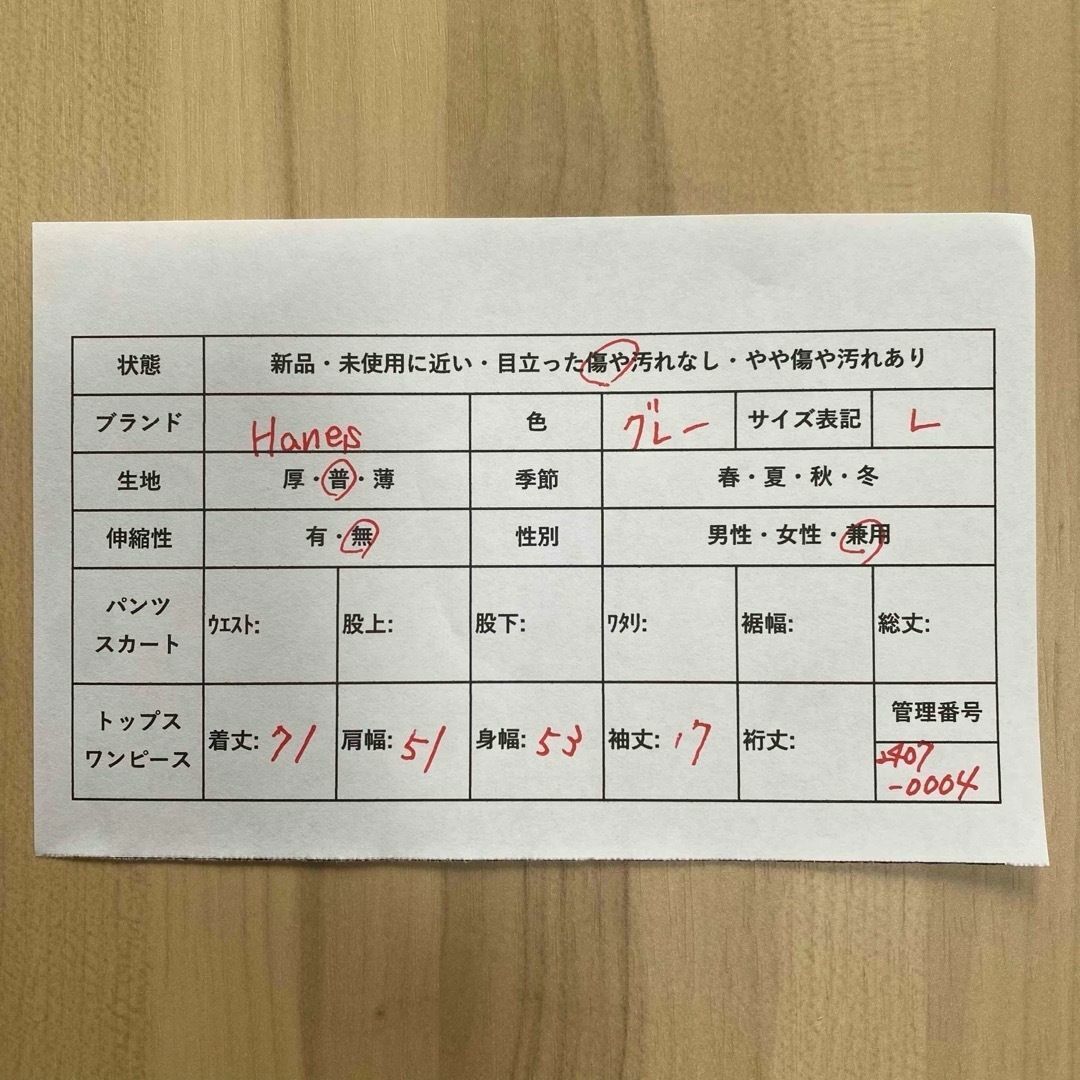 状態 新品・未使用に近い・目立った傷や汚れなし・やや傷や汚れあり
ブランド Hanes 色 グレー サイズ表記 L
生地 厚・普・薄 季節 春・夏・秋・冬
伸縮性 有・無 性別 男性・女性・兼用
パンツ
スカート
ｳｴｽﾄ: 股上: 股下: ﾜﾀﾘ: 裾幅: 総丈:
トップス
ワンピース
着丈: 71 肩幅: 51 身幅: 53 袖丈: 17 裄丈:
管理番号
2407
-0004